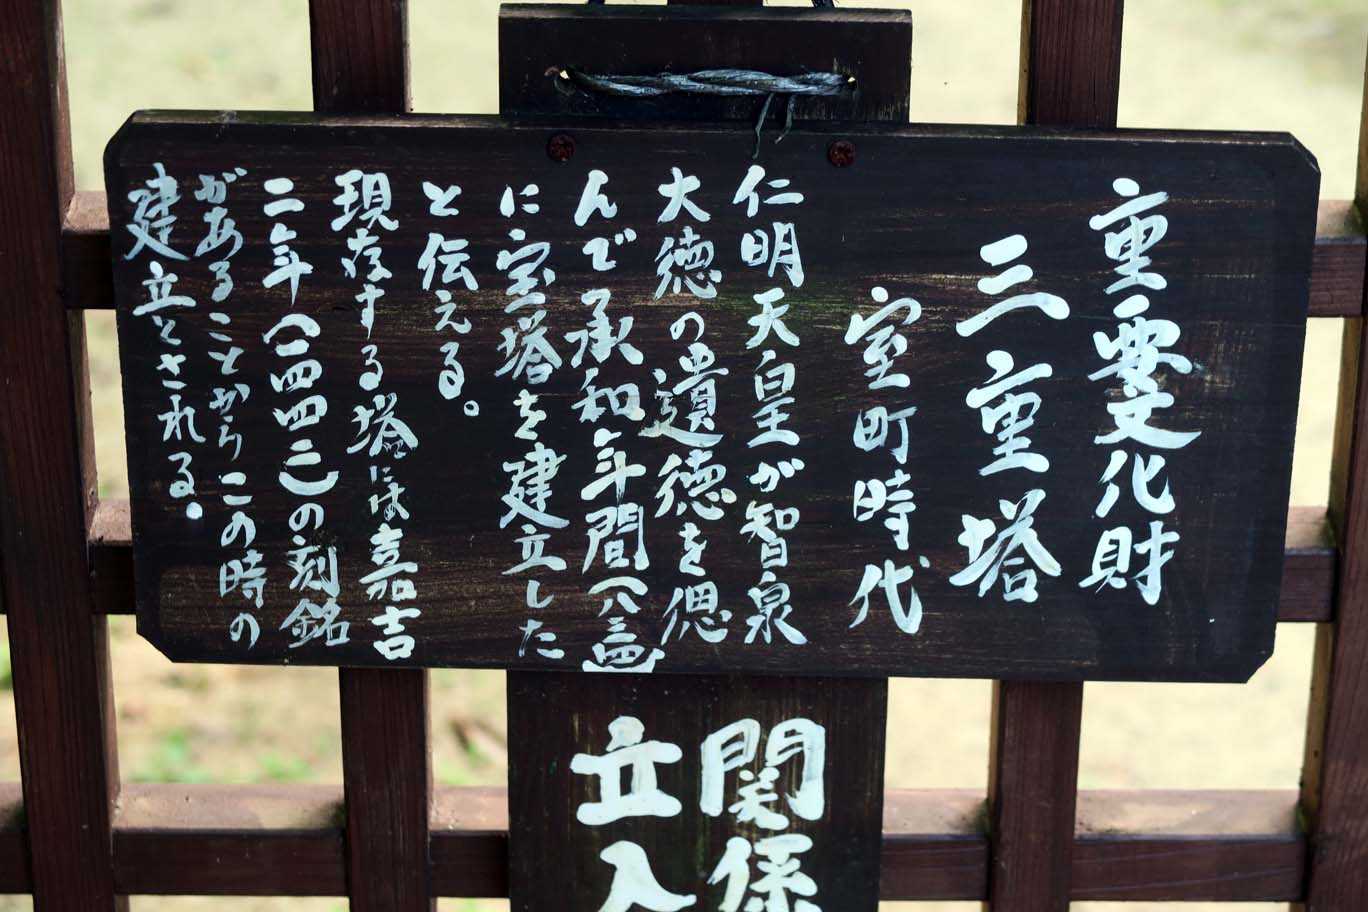 重要文化財
三重塔
室町時代
仁明天皇が智泉
大徳の遺徳を偲
んで承和年間(八三四)
に宝塔を建立した
と伝える。
現存する塔には嘉吉
二年(一四四二)の刻銘
があることからこの時の
建立とされる。
関係
立入